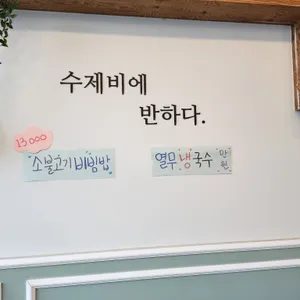 수제비에
반하다.
13,000
소불고기비빔밥
열무냉국수 만원